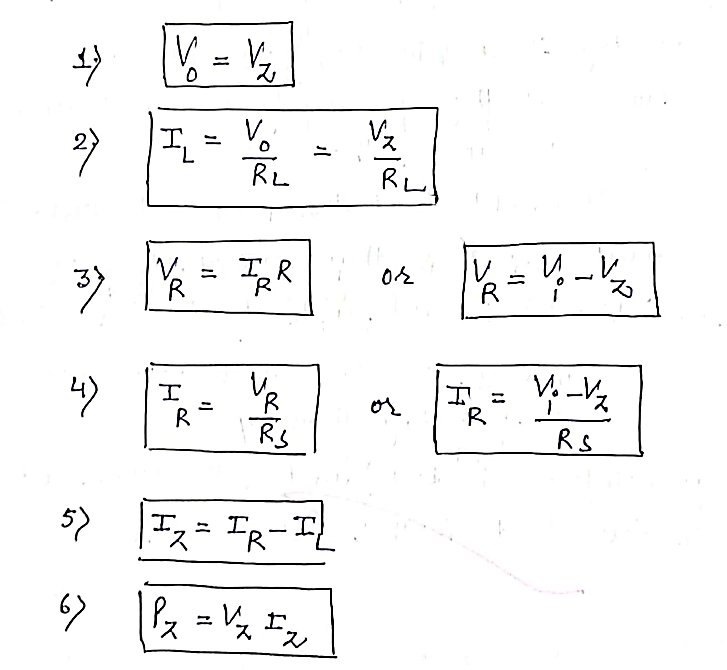 1) V₀ = V_Z
2) I_L = V₀/R_L = V_Z/R_L
3) V_R = I_R R or V_R = V_i - V_Z
4) I_R = V_R/R_S or I_R = V_i - V_Z/R_S
5) I_Z = I_R - I_L
6) P_Z = V_Z I_Z